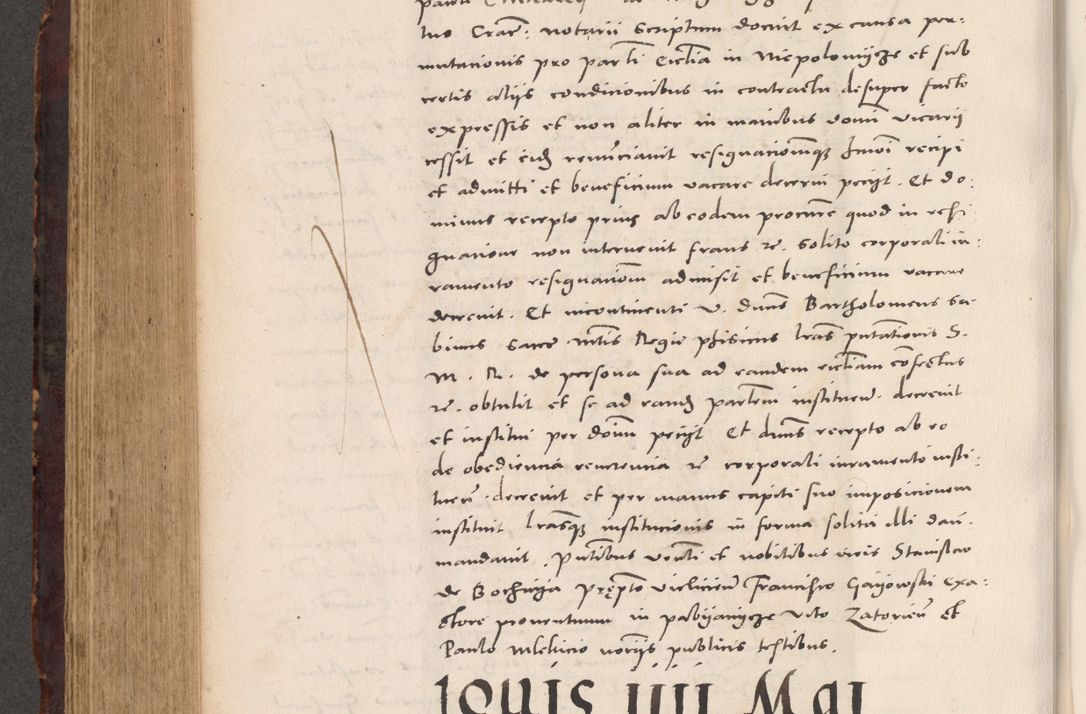 tuo Crac: notarii scriptum docuit ex causa per:
mutacionis pro parli Ecclia in Niepolomijcze et sub
certis alijs condicionibus in contractu desuper facto
expressis et non aliter in manibus domi vicarii
cessit et eidem renunciauit resignacionemque recipi
et admitti et beneficium vacare decerni pecijt. Et do:
minus recepto prius ab eodem procure quod in resi:
gnacione non interuenit fraus etc. solito corporali iu:
ramento resignacionem admisit et beneficium vacare
decreuit. Et incontinenti v. duns Bartholomeus Sa:
binus sacre mtis Regie phisicus lras pntationis S.
M. R. de persona sua ad eandem eccliam confectas
etc. obtulit et se ad eandem parlem instituen. decreuit
et institui per domi pecijt Et duns recepto ab eo
de obediencia reuerencia etc corporali iuramento insti:
tuen decreuit et per manus capiti suo imposicionem
instituit lrasque institucionis in forma solita illi dari
mandauit. Pntibus venli et nobilibus viris Stanislao
de Bochnija Prepto Vielicien Francisco Gaijowski exa:
ctore prouentuum in pabijanijcze Vito Zatorien et
Paulo Meleucio noriis publicis testibus.
Iouis iiii Mai